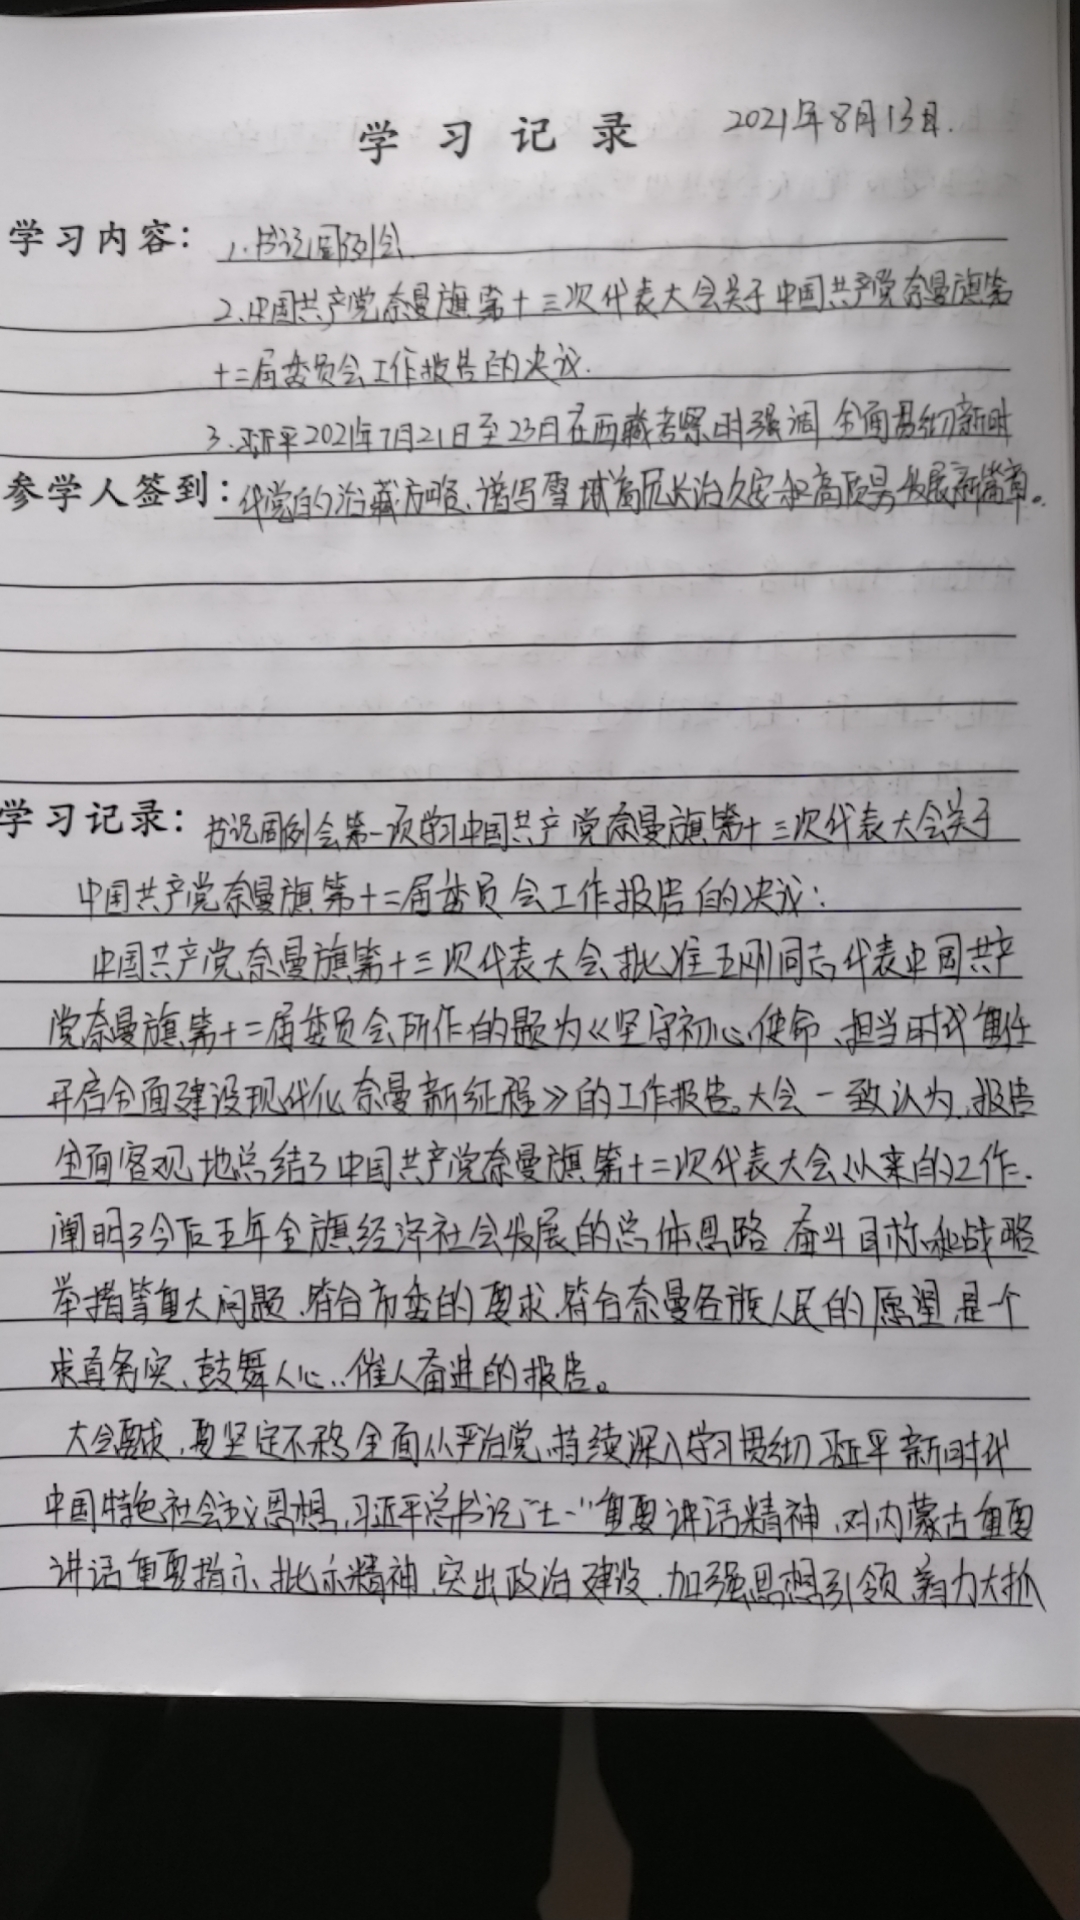 学习记录 2021年8月13日.
学习内容： 1.书记周例会.
2.中国共产党奈曼旗第十三次代表大会关于中国共产党奈曼旗第
十二届委员会工作报告的决议.
3.习近平2021年7月21日至23日在西藏考察时强调 全面贯彻新时
参学人签到： 代党的治藏方略、谱写雪域高原长治久安和高质量发展新篇章。
学习记录： 书记周例会第一项学习中国共产党奈曼旗第十三次代表大会关于
中国共产党奈曼旗第十二届委员会工作报告的决议：
中国共产党奈曼旗第十三次代表大会批准王刚同志代表中国共产
党奈曼旗第十二届委员会所作的题为《坚守初心使命、担当时代重任
开启全面建设现代化奈曼新征程》的工作报告。大会一致认为、报告
全面客观地总结了中国共产党奈曼旗第十二次代表大会以来的工作.
阐明了今后五年全旗经济社会发展的总体思路 奋斗目标和战略
举措等重大问题、符合市委的要求、符合奈曼各族人民的愿望 是一个
求真务实、鼓舞人心、催人奋进的报告。
大会要求、要坚定不移全面从严治党、持续深入学习贯彻习近平新时代
中国特色社会主义思想、习近平总书记“七一”重要讲话精神、对内蒙古重要
讲话重要指示、批示精神、突出政治建设、加强思想引领、着力大抓